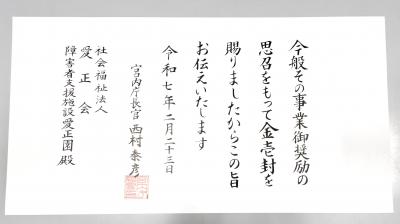 今般その事業御奨励の
思召をもって金壱封を
賜りましたからこの旨
お伝えいたします
令和七年二月二十三日
宮内庁長官 西村泰彦
社会福祉法人
愛正会
障害者支援施設愛正園 殿